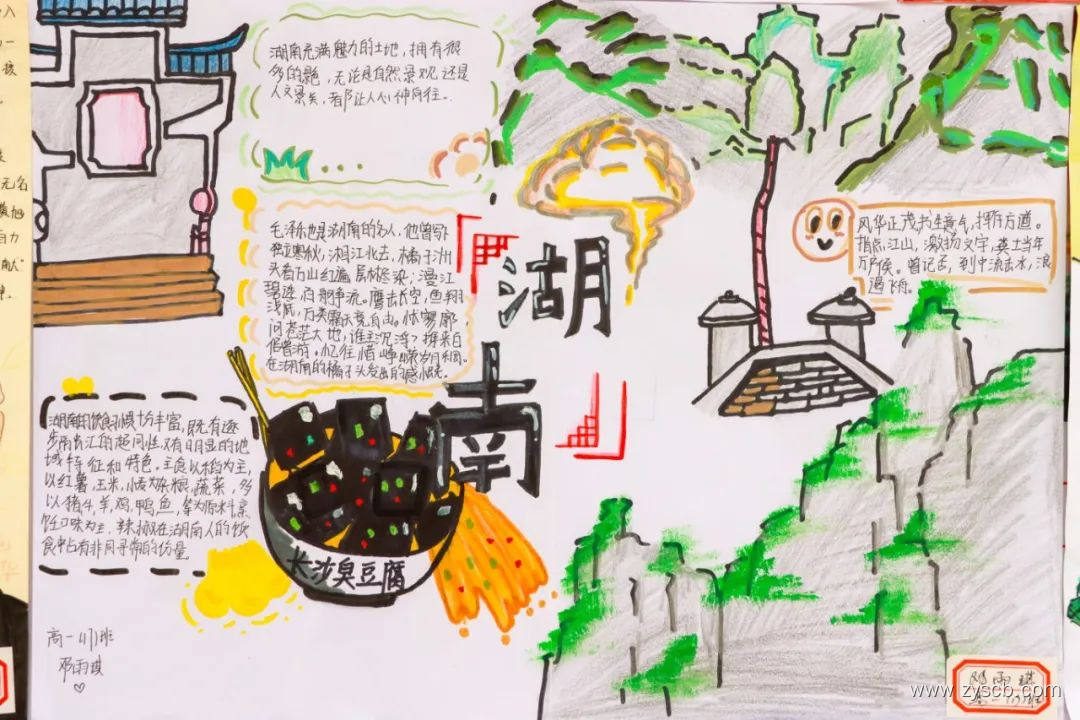 湖南充满魅力的土地，拥有很
多的美，无论是自然景观还是
人文景关，都让人心神向往。
毛泽东也是湖南的名人，他曾写
独立寒秋，湘江北去，橘子洲
头看万山红遍，层林尽染；漫江
碧透，百舸争流。鹰击长空，鱼翔
浅底，万类霜天竞自由。怅寥廓，
问苍茫大地，谁主沉浮？携来百
侣曾游。忆往昔峥嵘岁月稠。
在湖南的橘子头发出的感慨。
湖南
风华正茂书生意气，挥斥方遒。
指点江山，激扬文字，粪土当年
万户侯。曾记否，到中流击水，浪
遏飞舟。
湖南的饮食习惯十分丰富，既有逐
步南长江的趋同性，又有明显的地
域特征和特色。主食以稻为主，
以红薯，玉米，小麦为杂粮，蔬菜，多
以猪，牛，羊，鸡，鸭，鱼，等为原料烹
饪口味为主，辣椒在湖南人的饮
食中占有非同寻常的份量
长沙臭豆腐
高一471班
邓雨琪
邓雨琪
www.zyscb.com